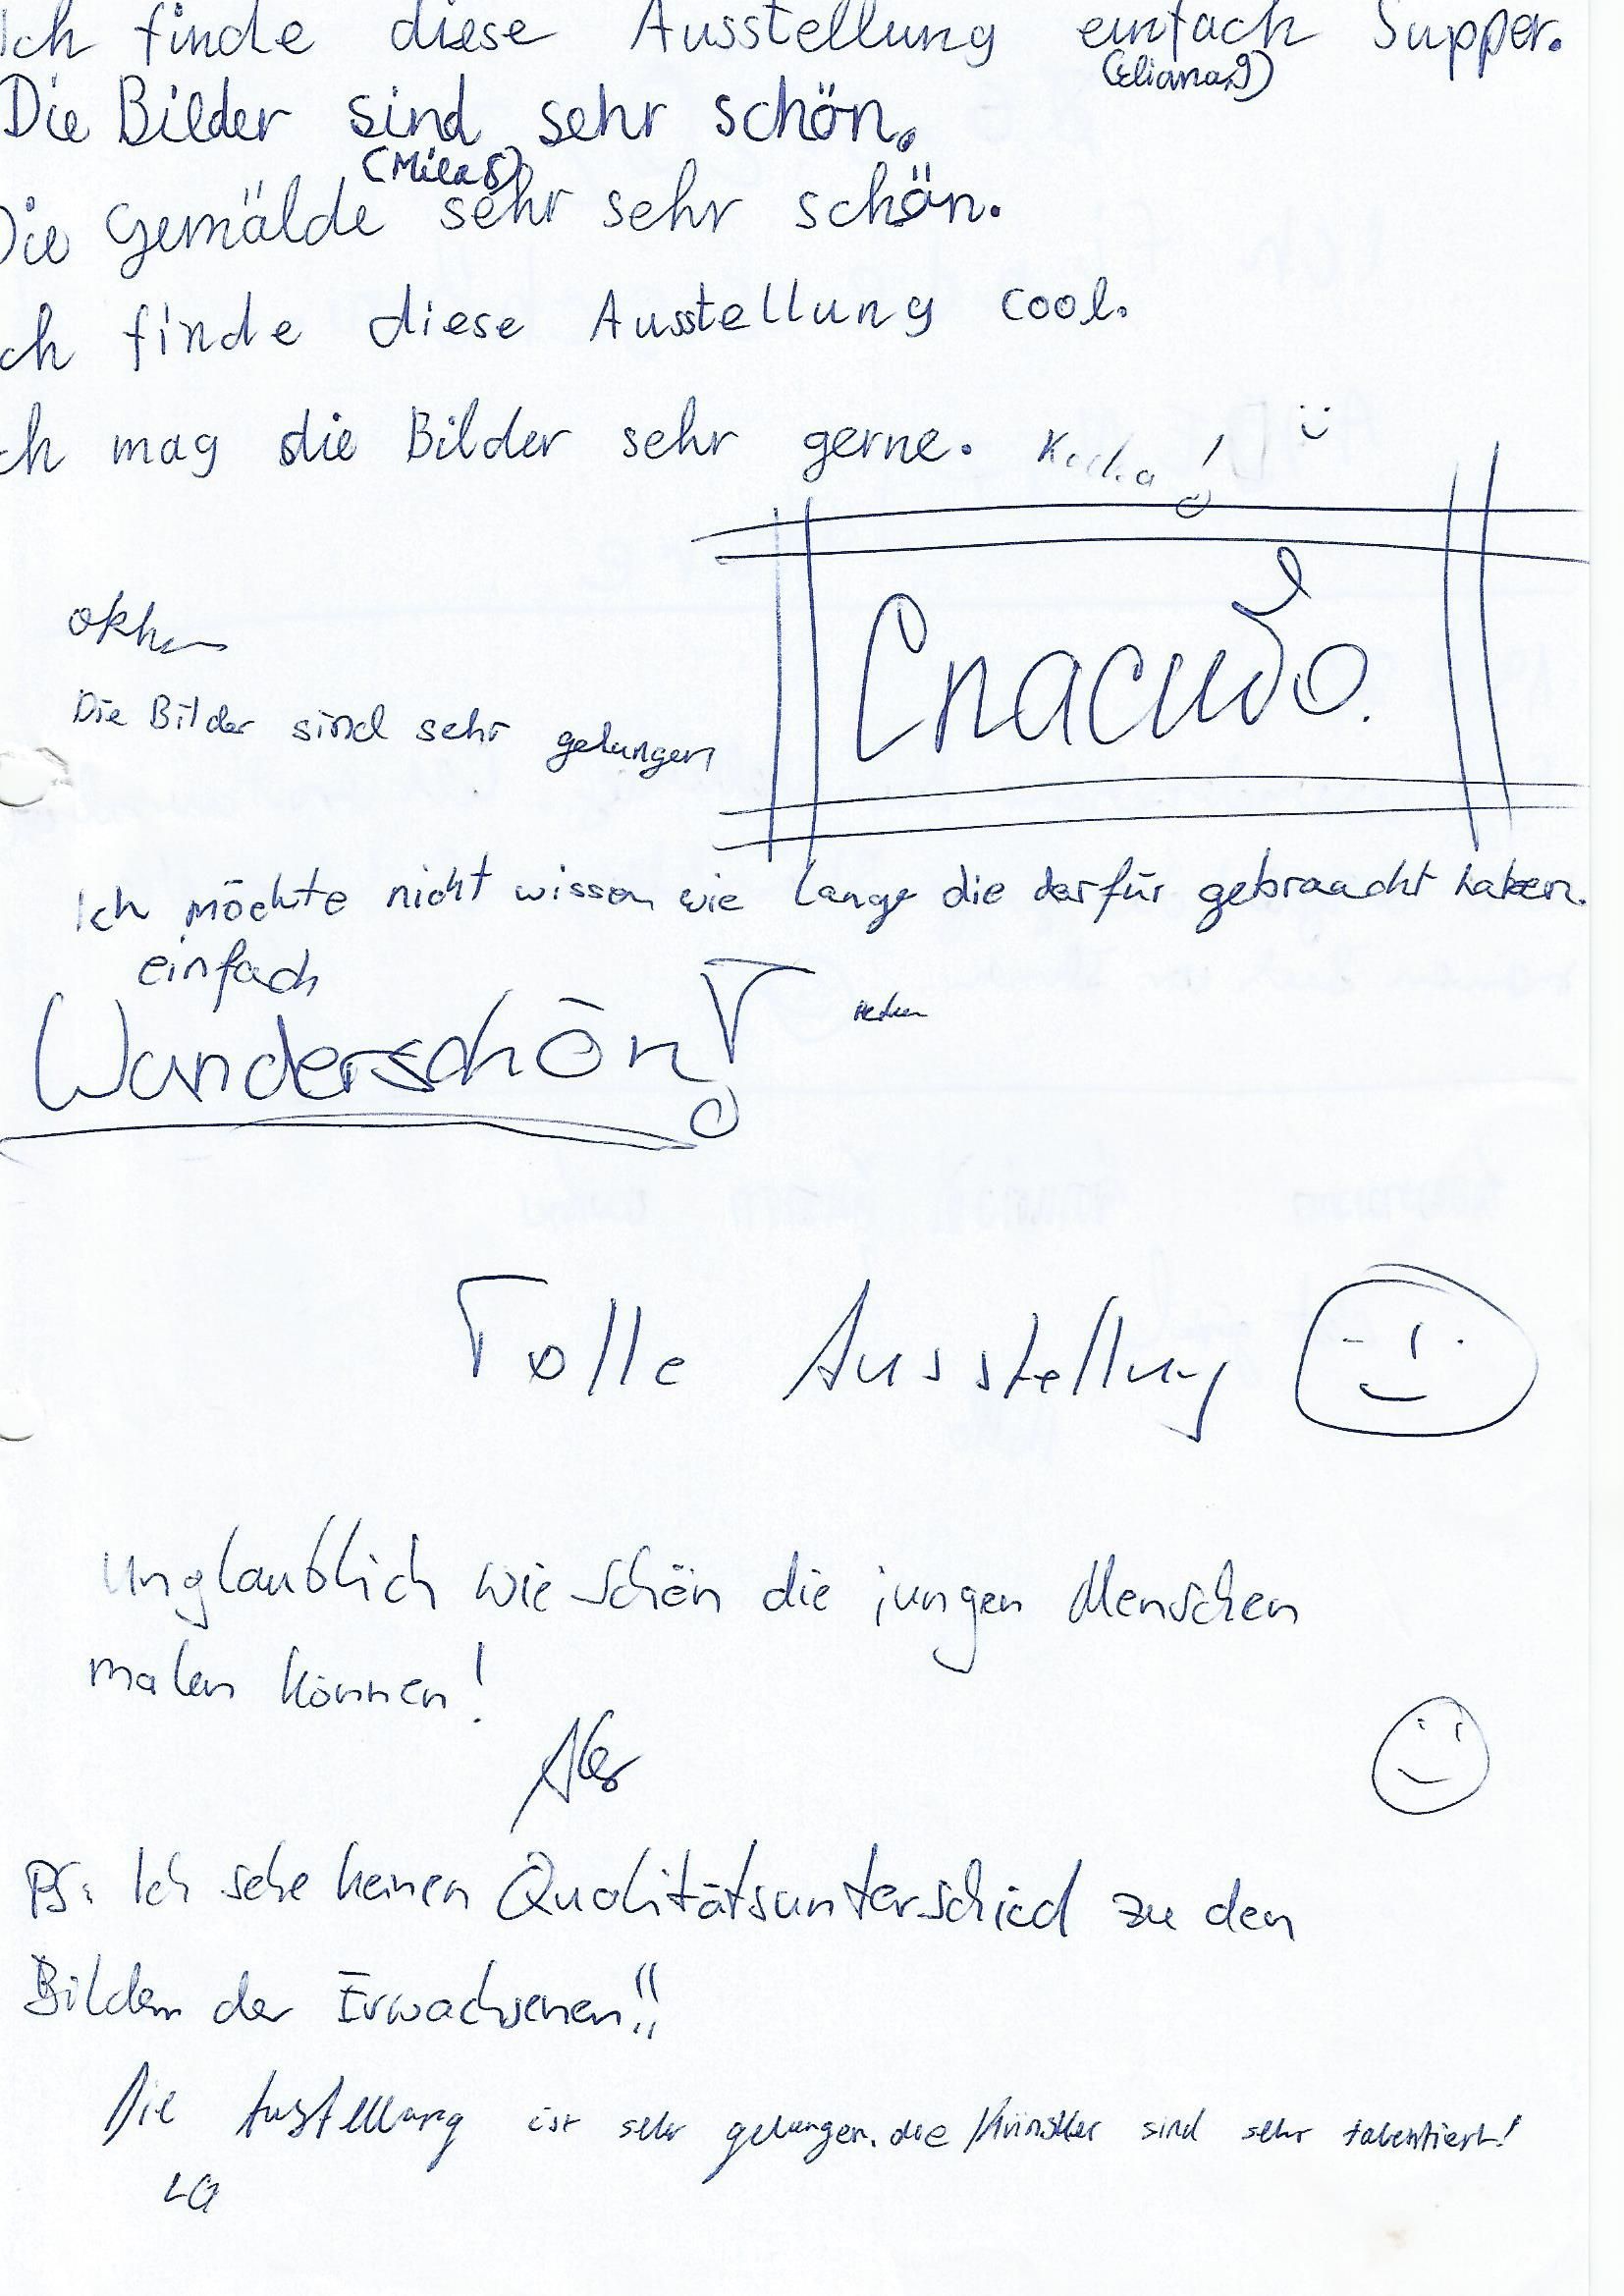 Ich finde diese Ausstellung einfach Supper.
(Eliana,9)
Die Bilder sind sehr schön.
(Mila 8)
Die Gemälde sehr sehr schön.
Ich finde diese Ausstellung cool.
Ich mag die Bilder sehr gerne.
Спасибо.
Die Bilder sind sehr gelungen
Ich möchte nicht wissen wie lange die darfür gebraucht haben.
einfach
Wunderschön!
Tolle Ausstellung
Unglaublich wie schön die jungen Menschen
malen können!
PS: Ich sehe keinen Qualitätsunterschied zu den
Bildern der Erwachsenen!!
Die Austellung ist sehr gelungen. die Künstler sind sehr talentiert!
LG